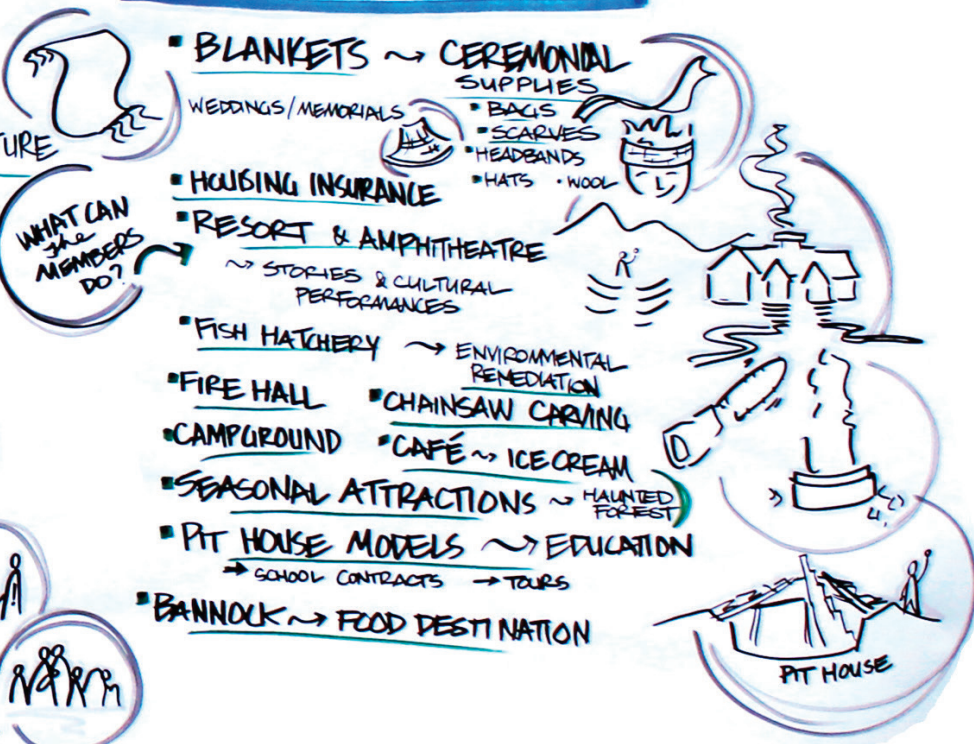 ▪ BLANKETS ~> CEREMONIAL
SUPPLIES
WEDDINGS/MEMORIALS
▪ BAGS
▪ SCARVES
▪ HEADBANDS
▪ HATS ▪ WOOL
TURE
WHAT CAN
the
MEMBERS
DO?
▪ HOUSING INSURANCE
▪ RESORT & AMPHITHEATRE
~> STORIES & CULTURAL
PERFORMANCES
▪ FISH HATCHERY ~> ENVIRONMENTAL
REMEDIATION
▪ FIRE HALL
▪ CHAINSAW CARVING
▪ CAMPGROUND
▪ CAFÉ ~> ICE CREAM
▪ SEASONAL ATTRACTIONS ~> HAUNTED
FOREST
▪ PIT HOUSE MODELS ~> EDUCATION
→ SCHOOL CONTRACTS → TOURS
▪ BANNOCK ~> FOOD DESTINATION
PIT HOUSE